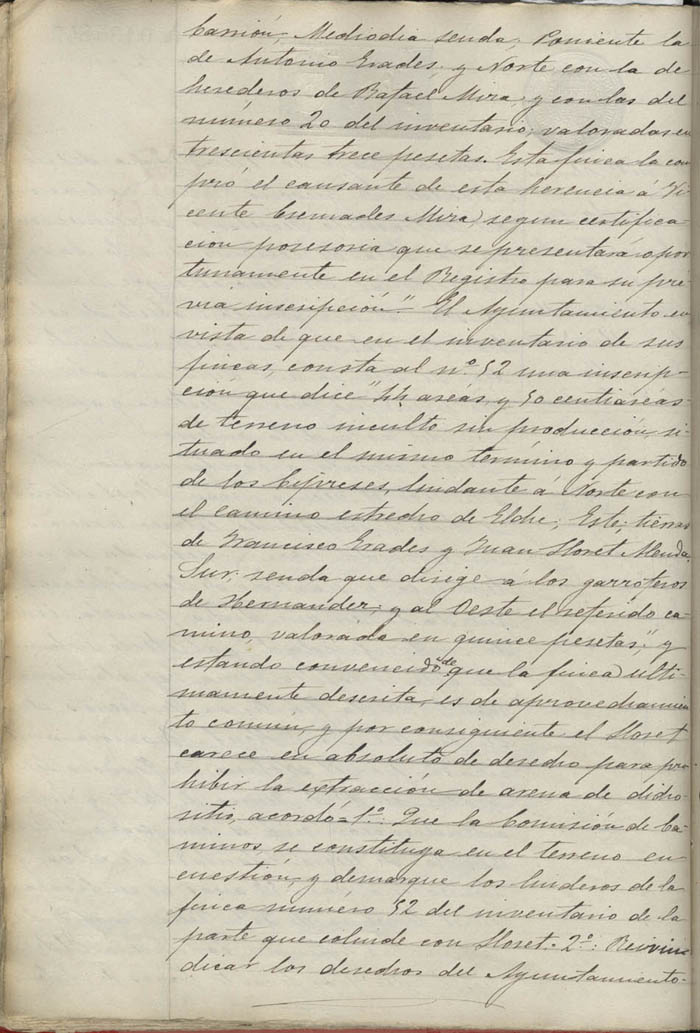 Carrión, Mediodia senda, Poniente la
de Antonio Erades, y Norte con la de
herederos de Rafael Mira, y con las del
número 20 del inventario, valoradas en
trescientas trece pesetas. Esta finca la com
pró el causante de esta herencia á Vi
cente Cremades Mira, segun certifica-
cion posesoria que se presentará opor
tunamente en el Registro para su pre-
via inscripción." El Ayuntamiento en
vista de que en el inventario de sus
fincas, consta al nº 52 una inscrip-
ción que dice "44 areas, y 50 centiareas
de terreno inculto sin producción, si-
tuado en el mismo término y partido
de los Cipreses, lindante á Norte con
el camino estrecho de Elche; Este, tierras
de Francisco Erades y Juan Lloret
Sur, senda que dirige á los garroferos
de Hernander; y al Oeste el referido ca-
mino, valorada en quince pesetas", y
estando convencido de que la finca ulti-
mamente descrita, es de aprovechamien
to comun, y por consiguiente el Lloret
carece en absoluto de derecho para pro
hibir la extracción de arena de dicho
sitio, acordó= 1º. Que la Comisión de Ca-
minos, se constituya en el terreno en
cuestión, y demarque los linderos de la
finca numéro 52 del inventario de la
parte que colinde con Lloret. 2º. Reivin-
dicar los derechos del Ayuntamiento-